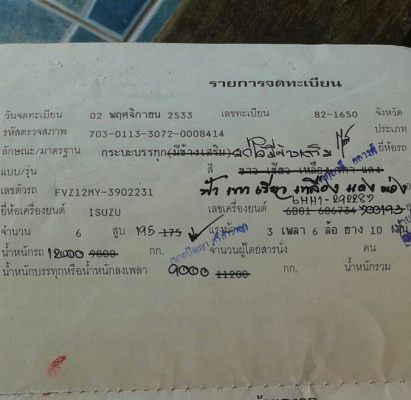 รายการจดทะเบียน
วันจดทะเบียน 02 พฤศจิกายน 2533 เลขทะเบียน 82-1650 จังหวัด
รหัสตรวจสภาพ 703-0113-3072-0008414 ประเภท
ลักษณะ/มาตรฐาน กระบะบรรทุก(มีข้างเสริม) ยี่ห้อรถ
แบบ/รุ่น สี ขาว เขียว เหลือง เทา แดง
ฟ้า เทา เขียว เหลือง แดง
เลขตัวรถ FVZ12MY-3902231 6HH1-
ยี่ห้อเครื่องยนต์ ISUZU เลขเครื่องยนต์ 6BB1 686734
จำนวน 6 สูบ 195 175 แรงม้า 3 เพลา 6 ล้อ ยาง 10 เส้น
น้ำหนักรถ 12000 9800 กก. จำนวนผู้โดยสารนั่ง คน
น้ำหนักบรรทุกหรือน้ำหนักลงเพลา 9000 11200 กก. น้ำหนักรวม